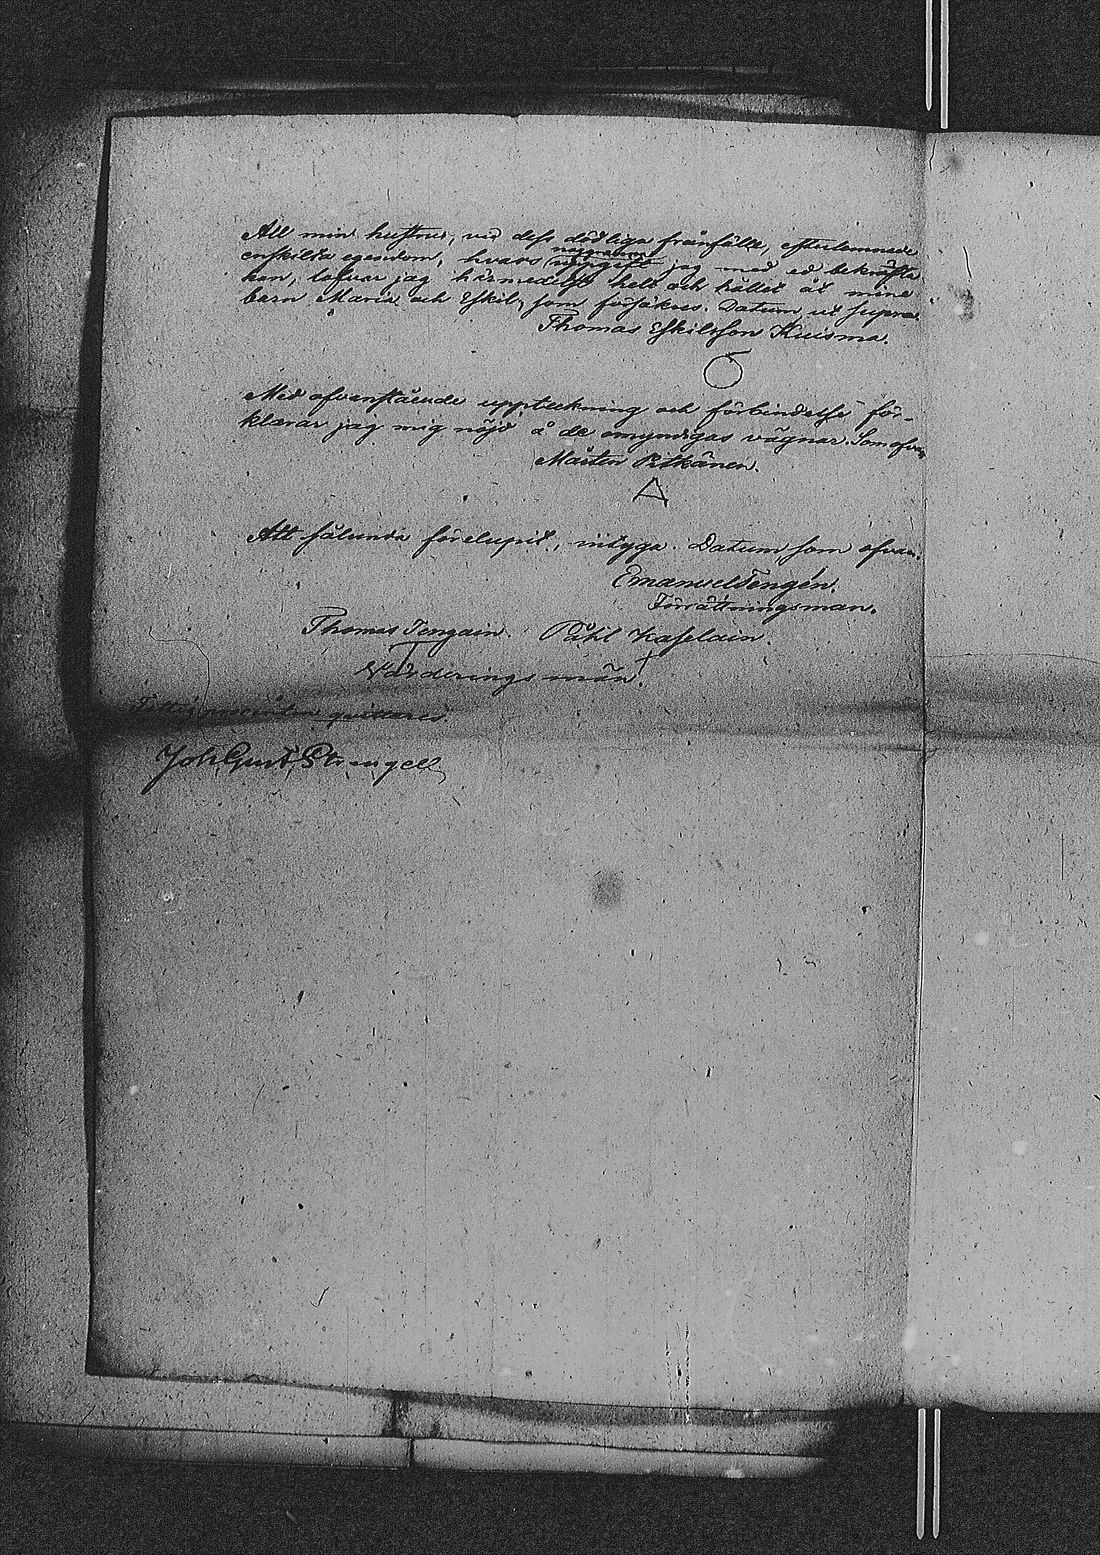 All min hustru, vid dess dödliga frånfälle, efterlemnade
enskilta egendom, hvars noggranna uppgift jag med ed bekräfta
kan, lofvar jag härmedelst helt och hållet åt mine
barn Maria och Eskil, som försäkras. Datum ut supra.
Thomas Eskilsson Kuisma.
Med ofvanstående uppteckning och förbindelse för-
klarar jag mig nöjd å de omyndigas vägnar. Som ofvan
Mårten Pitkänen.
Att sålunda förelupit, intyga. Datum som ofvan.
Emanuel Tengén.
Förrättningsman.
Thomas Tengain. Påhl Kaselain.
Värderingsmän.
qvitteras
Joh Gust Strengell